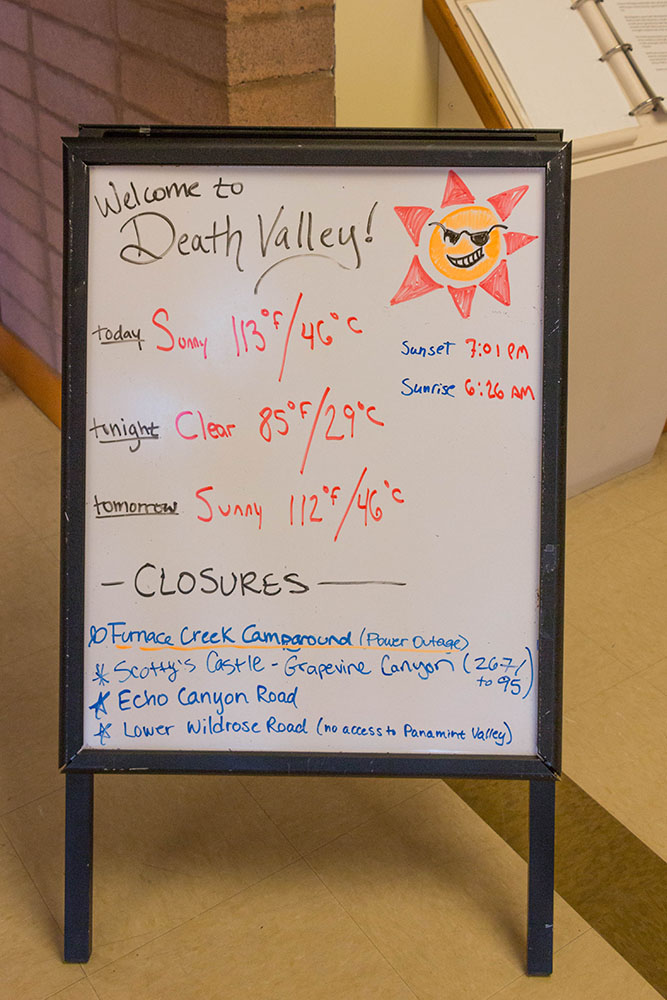 Welcome to
Death Valley!
today Sunny 113°F/46°C
Sunset 7:01 PM
Sunrise 6:26 AM
tonight Clear 85°F/29°C
tomorrow Sunny 112°F/46°C
- CLOSURES -
Furnace Creek Campground (Power Outage)
* Scotty's Castle - Grapevine Canyon (267/ to 95)
* Echo Canyon Road
* Lower Wildrose Road (no access to Panamint Valley)